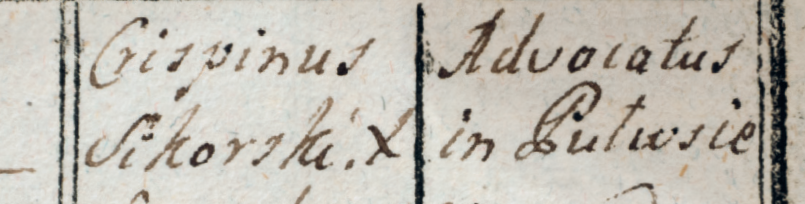 Crispinus
Sikorski. X
Advocatus
in Putwsie